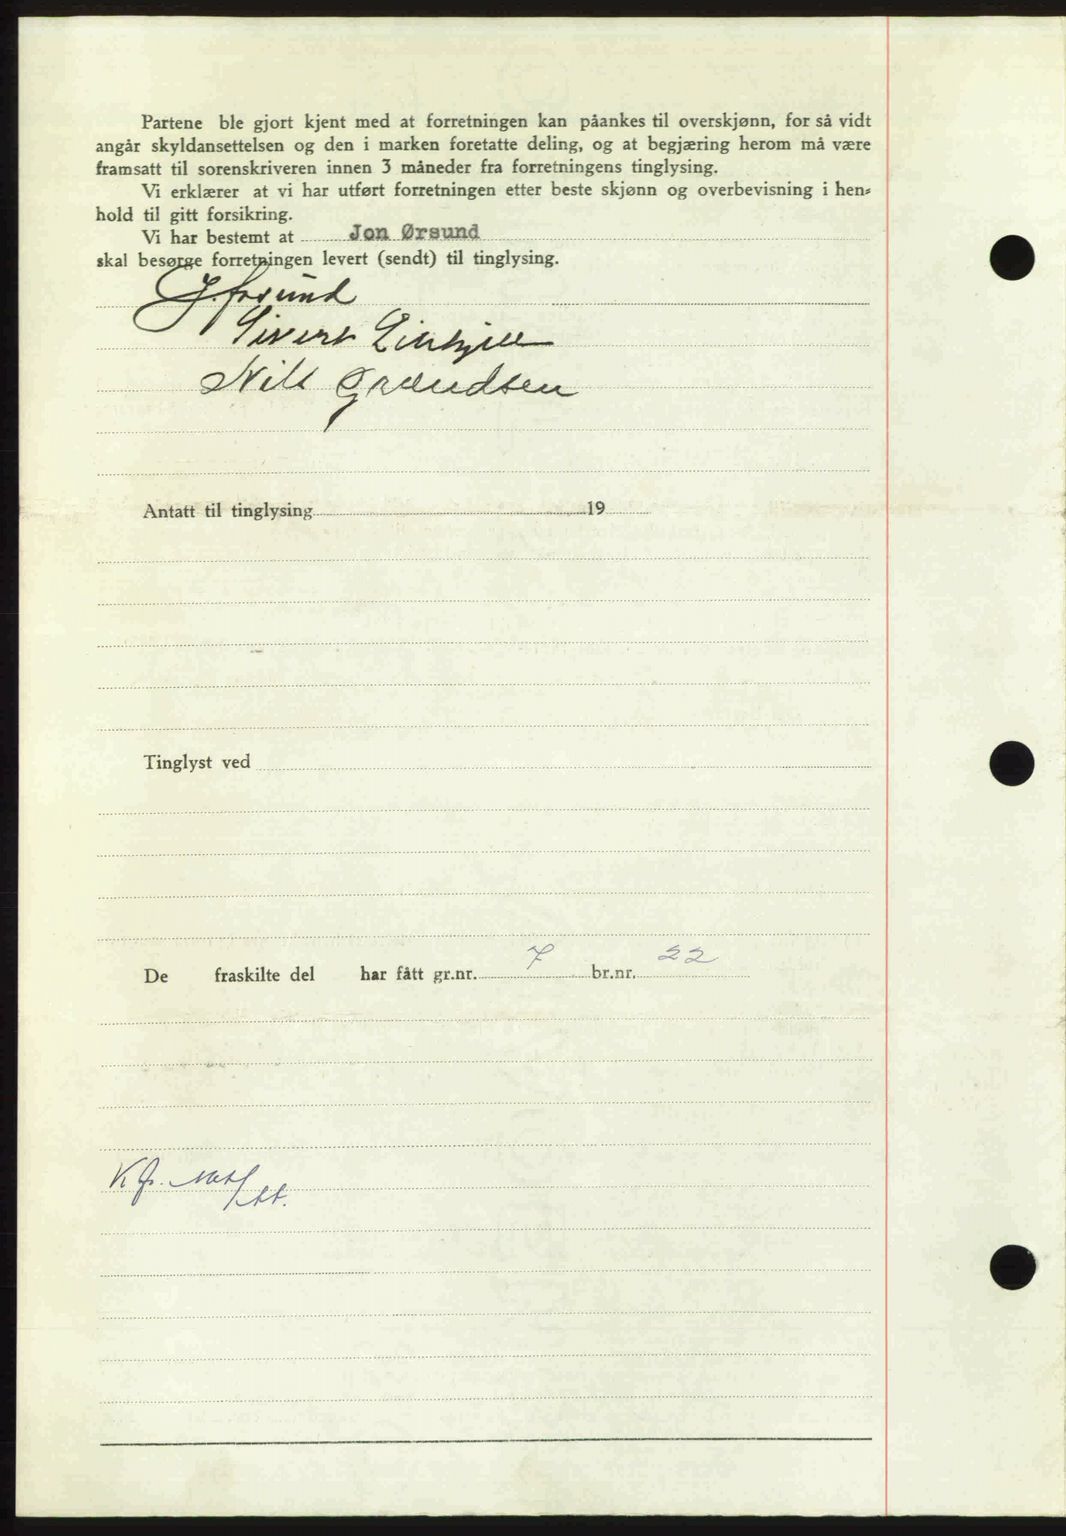 Partene ble gjort kjent med at forretningen kan påankes til overskjønn, for så vidt
angår skyldansettelsen og den i marken foretatte deling, og at begjæring herom må være
framsatt til sorenskriveren innen 3 måneder fra forretningens tinglysing.
Vi erklærer at vi har utført forretningen etter beste skjønn og overbevisning i hen-
hold til gitt forsikring.
Vi har bestemt at Jon Ørsund
skal besørge forretningen levert (sendt) til tinglysing.
J. Ørsund
Sivert
Nils
Antatt til tinglysing 19
Tinglyst ved
De fraskilte del har fått gr.nr. 7 br.nr. 22